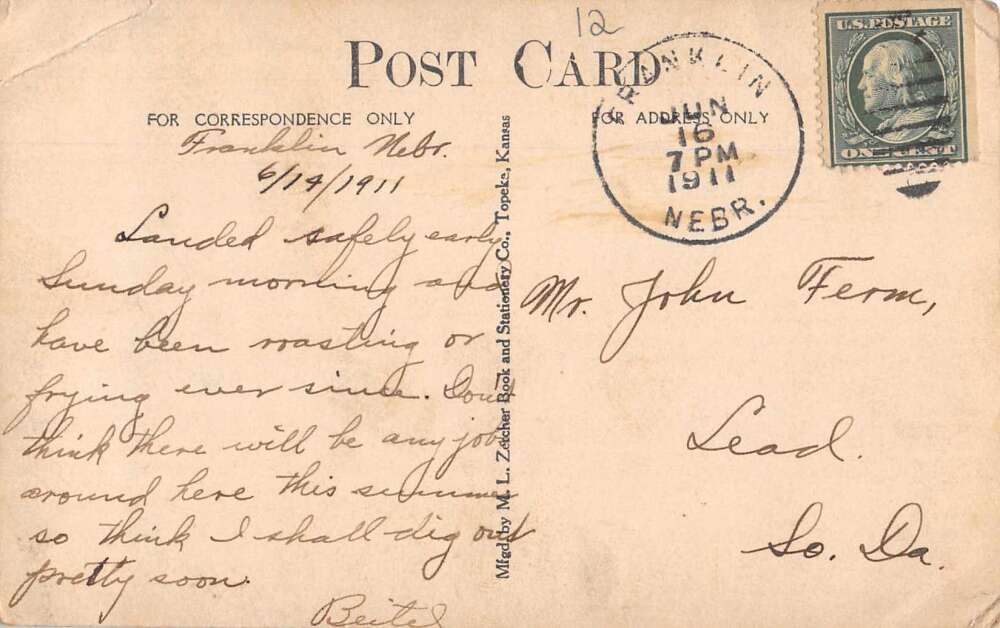 12
POST CARD
FOR CORRESPONDENCE ONLY
FOR ADDRESS ONLY
U.S. POSTAGE
ONE CENT
FRANKLIN
JUN
16
7 PM
1911
NEBR.
Franklin Nebr.
6/14/1911
Landed safely early
Sunday morning and
have been roasting or
frying ever since. Don't
think there will be any job
around here this summer
so think I shall dig out
pretty soon.
Beitel
Mfgd. by M. L. Zercher Book and Stationery Co., Topeka, Kansas
Mr. John Ferm,
Lead.
So. Da.